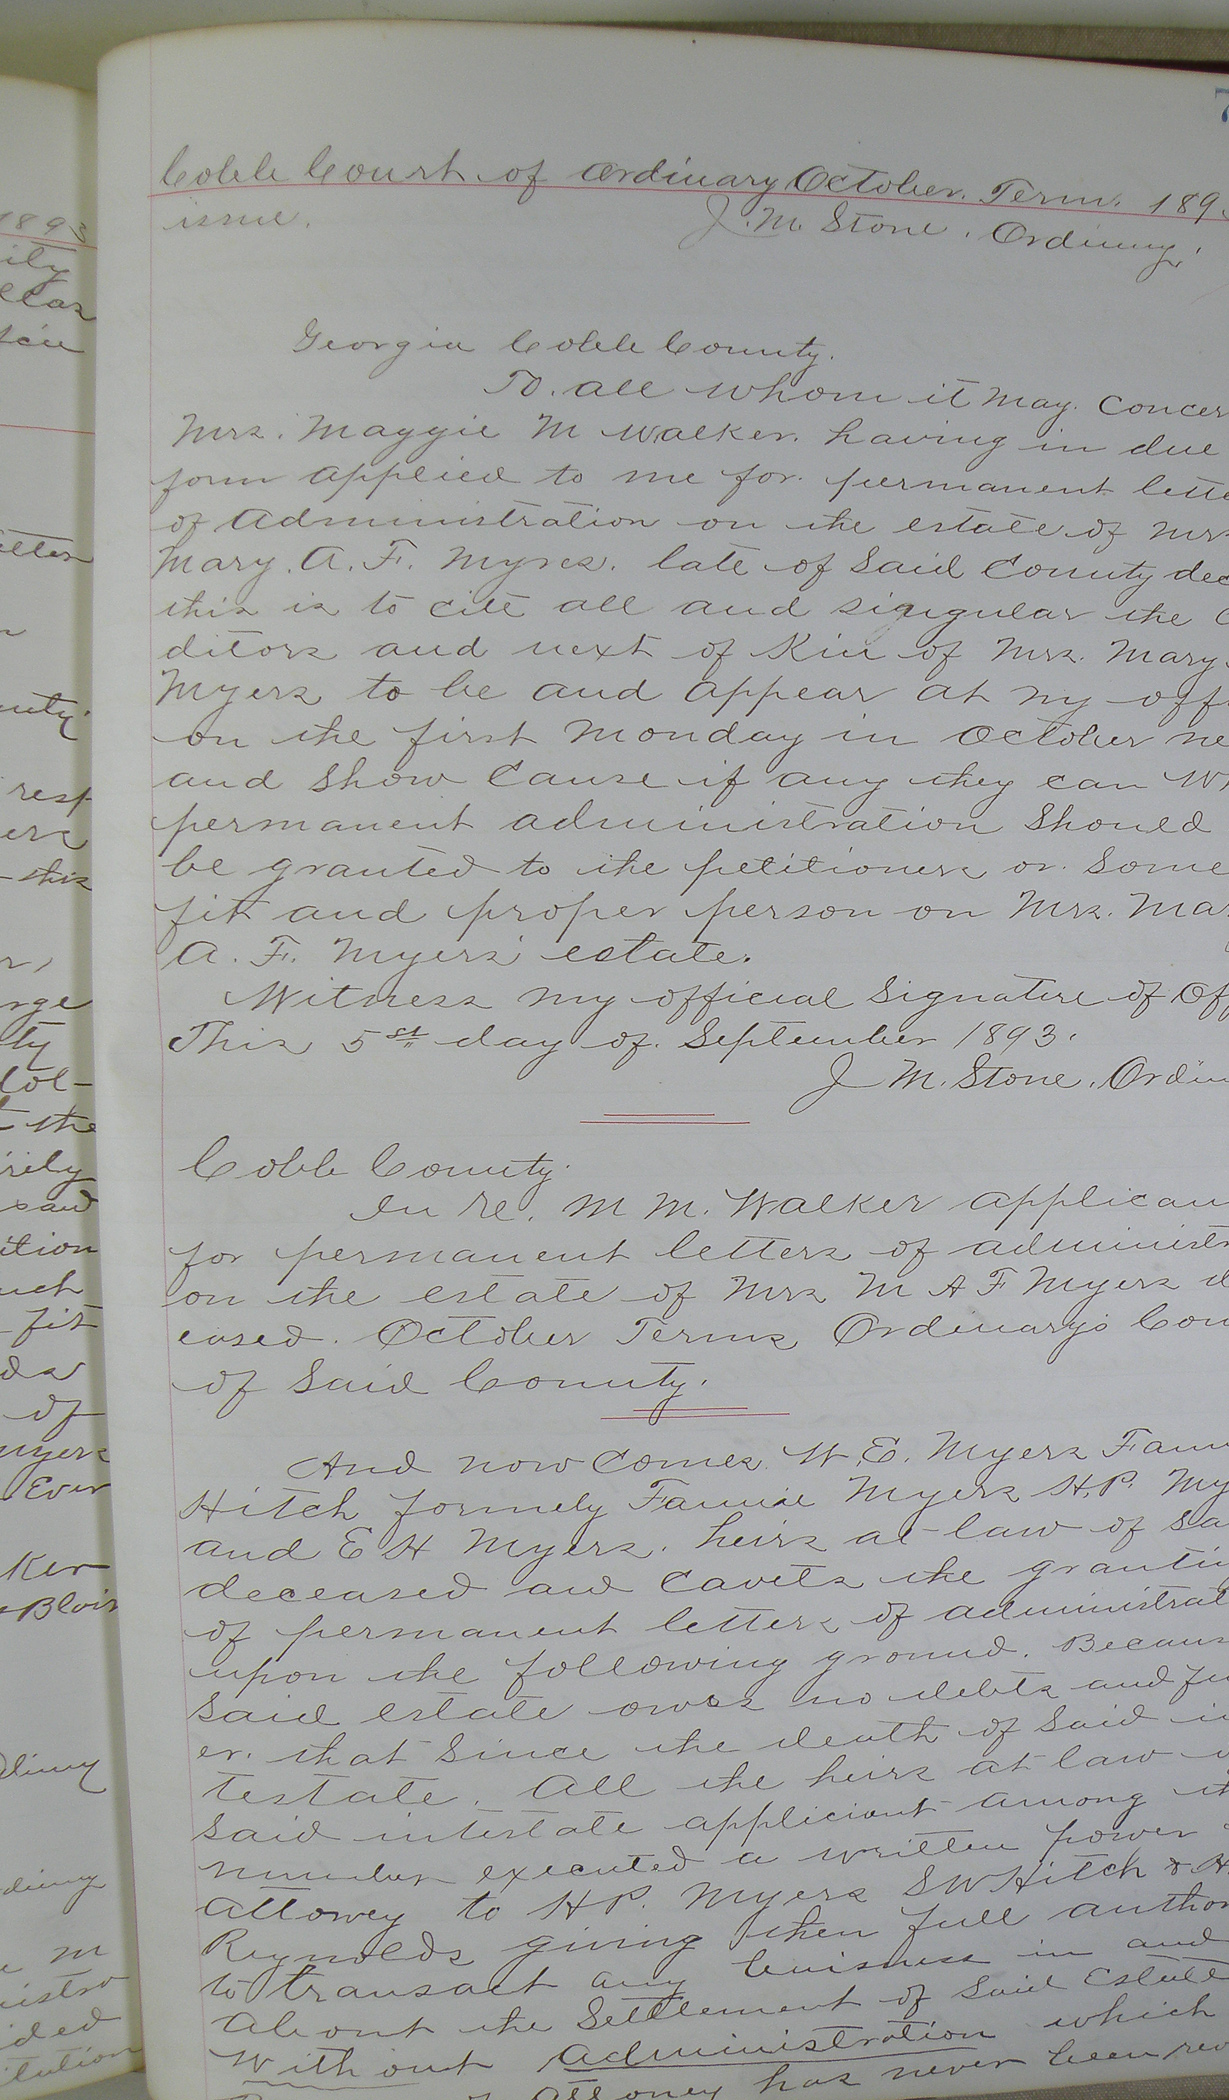 1893
ily
llar
ition
uch
fit
of
myers
Ever
Ker
Blair
7
Cobb Court of Ordinary October. Term. 189
issue. J. M. Stone. Ordinary.
Georgia Cobb County.
To. all whom it may. Concer
Mrs. Maggie M Walker. having in due
form applied to me for permanent lette
of Administration on the estate of Mrs
Mary. A. F. Myres. late of Said County dec
this is to cite all and singular the C
ditors and next of Kin of Mrs. Mary.
Myers to be and appear at my off
on the first Monday in October ne
and Show Cause if any they can Wh
permanent administration Should
be granted to the petitioners or Some
fit and proper person on Mrs. Mar
A. F. Myers' estate.
Witness my official Signature of Off
This 5st day of. September 1893.
J M. Stone. Ordin
Cobb County.
In re. M M. Walker applican
for permanent letters of administr
on the estate of Mrs M A F Myers d
eased. October Terms Ordinary's Cou
of Said County.
And now Comes W. E. Myers Fann
Hitch formely Fannie Myers H. P. My
and E H Myers. heirs at law of Sa
deceased and Cavets the granti
of permanent letters of administrat
upon the following ground. Becaus
Said estate owes no debts and fu
er. that Since the death of Said in
testate. All the heirs at law
Said intestate applicient among th
number executed a written power
Attorney to H P. Myers S W Hitch & H
Reynolds giving then full author
to transact any buisness in and
About the Settlement of Said Estate
Without Administration which
of Attoney has never been rev